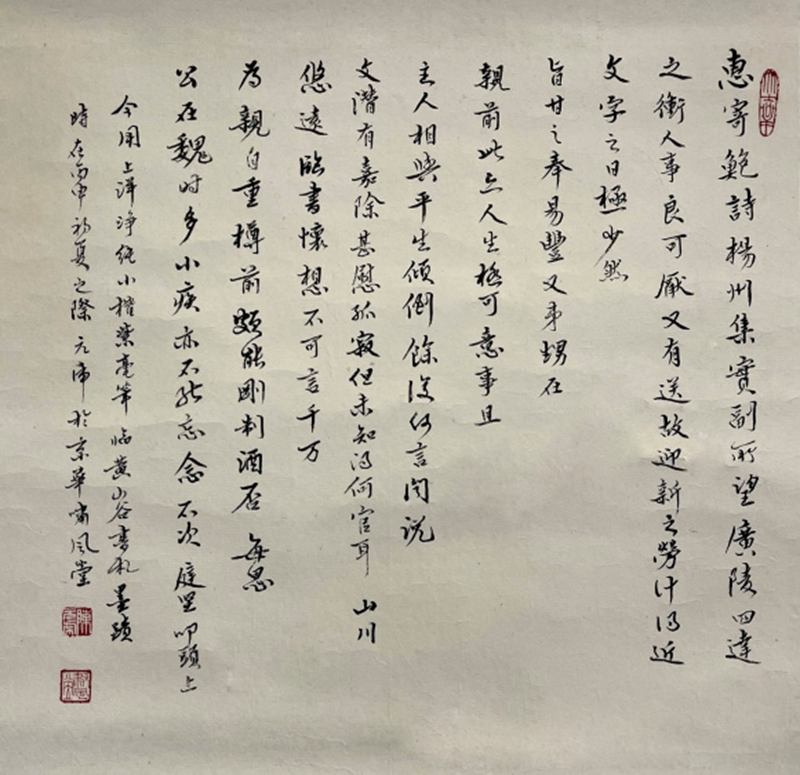 惠寄鲍詩楊州集實副所望廣陵四達
之衝人事良可厭又有送故迎新之勞計得近
文字之日極少然
旨甘之奉易豐又弟甥在
親前此亦人生極可意事且
主人相與平生傾倒餘復何言閏說
文潛有嘉除甚慰孤寂但未知得何官耳 山川
悠遠臨書懷想不可言千万
為親自重樽前頗能剛制酒否 每思
公在魏时多小疾亦不能忘念不次 庭坚叩頭上
今用上洋淨純小楷紫毫筆临黄山谷書札墨蹟
時在丙申初夏之際 元沛於京華啸風堂